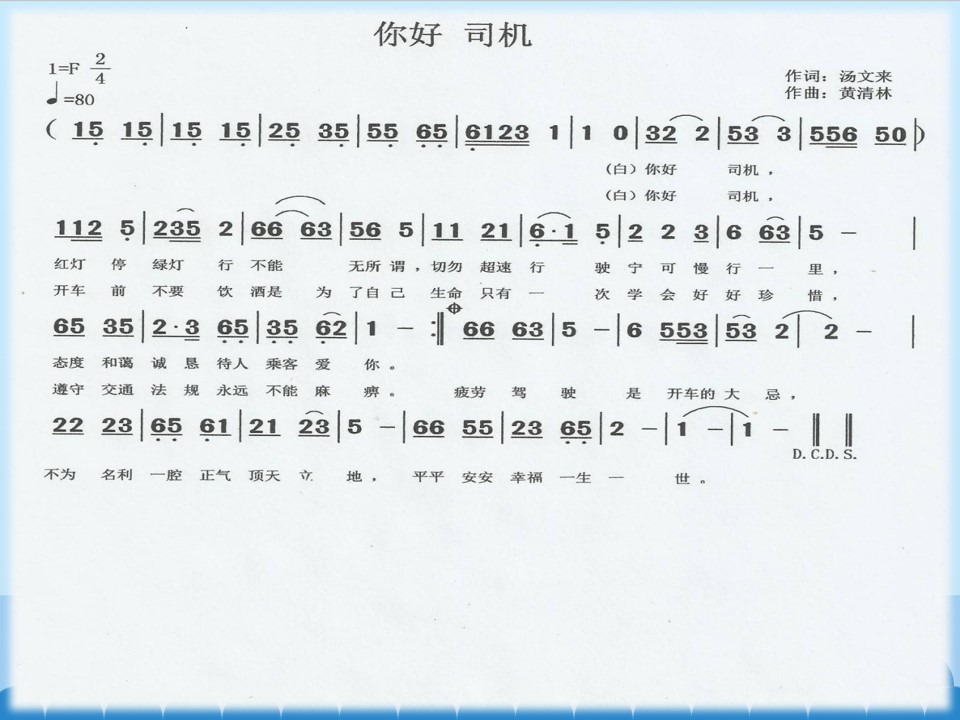 你好 司机
1=F 2/4
♩=80
作词：汤文来
作曲：黄清林
( 15 15 | 15 15 | 25 35 | 55 65 | 6123 1 | 1 0 | 32 2 | 53 3 | 556 50 )
（白）你好 司机，
（白）你好 司机，
112 5 | 235 2 | 66 63 | 56 5 | 11 21 | 6·1 5 | 2 2 3 | 6 63 | 5 – |
红灯 停 绿灯 行 不能 无所谓，切勿 超速 行 驶 宁 可 慢 行 一 里，
开车 前 不要 饮 酒是 为 了自 己 生命 只有 一 次 学 会 好 好 珍 惜，
65 35 | 2·3 65 | 35 62 | 1 – :‖ 66 63 | 5 – | 6 553 | 53 2 | 2 – |
态度 和蔼 诚 恳 待人 乘客 爱 你。
遵守 交通 法 规 永远 不能 麻 痹。 疲劳 驾 驶 是 开车的 大 忌，
22 23 | 65 61 | 21 23 | 5 – | 66 55 | 23 65 | 2 – | 1 – | 1 – ‖ ‖
D.C.D.S.
不为 名利 一腔 正气 顶天 立 地， 平平 安安 幸福 一生 一 世。